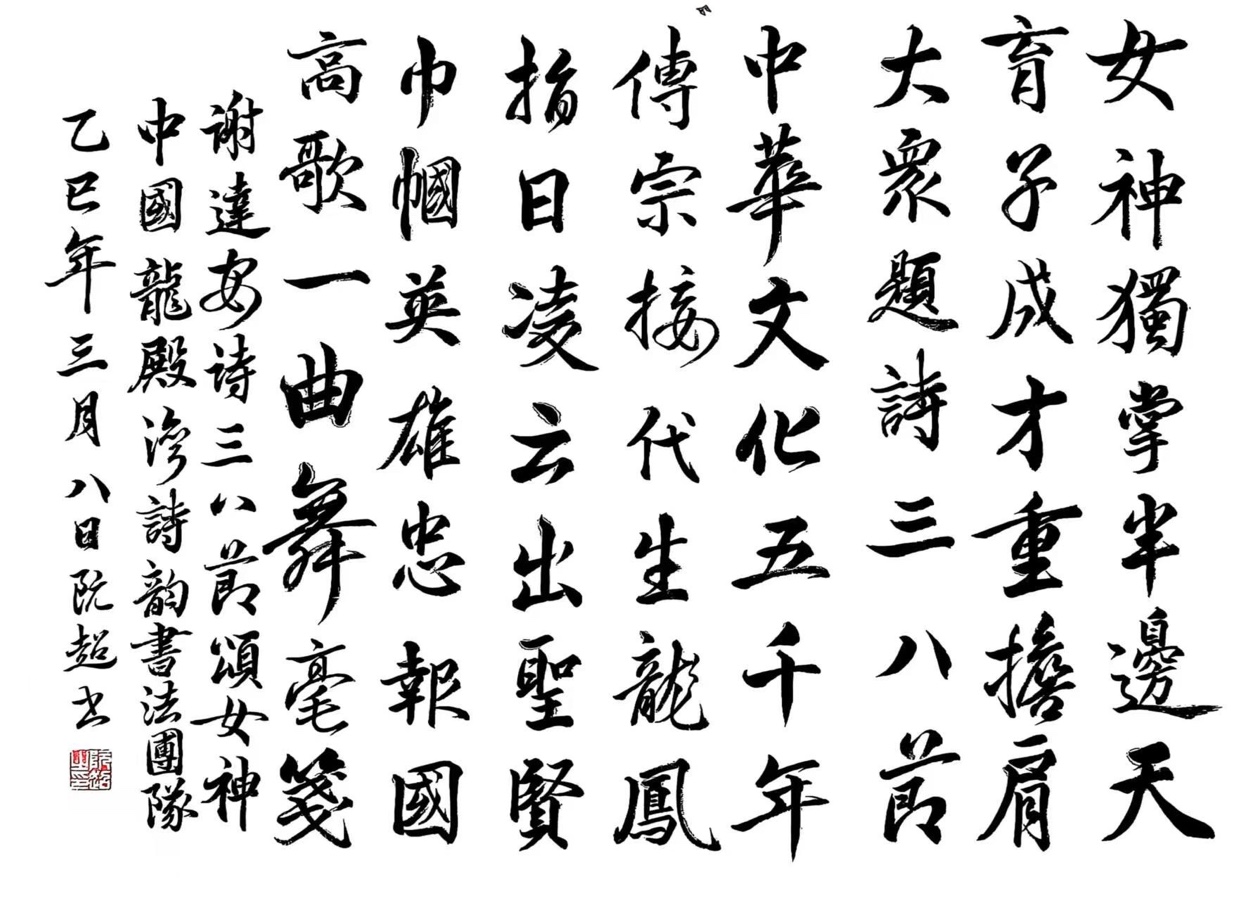 女神獨掌半邊天
育子成才重擔肩
大衆題詩三八节
中華文化五千年
傳宗接代生龍鳳
指日凌云出聖賢
巾幗英雄忠報國
高歌一曲舞毫箋
謝達安诗三八节頌女神
中國龍殿灣詩韵書法團隊
乙巳年三月八日阮超书